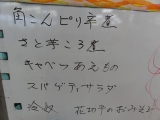 角こんピリ辛煮
さと芋ころ煮
キャベツあえもの
スパゲティサラダ
冷奴 花切手のおみそ